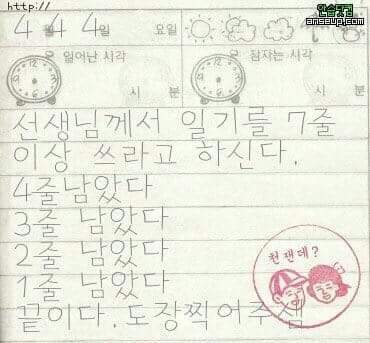 http://
안습닷컴
anseup.com
4월 4일 요일
일어난 시각 잠자는 시각
시 분 시 분
선생님께서 일기를 7줄
이상 쓰라고 하신다.
4줄남았다
3줄 남았다
2줄 남았다
1줄 남았다
끝이다. 도장찍어주셈
천잰데?